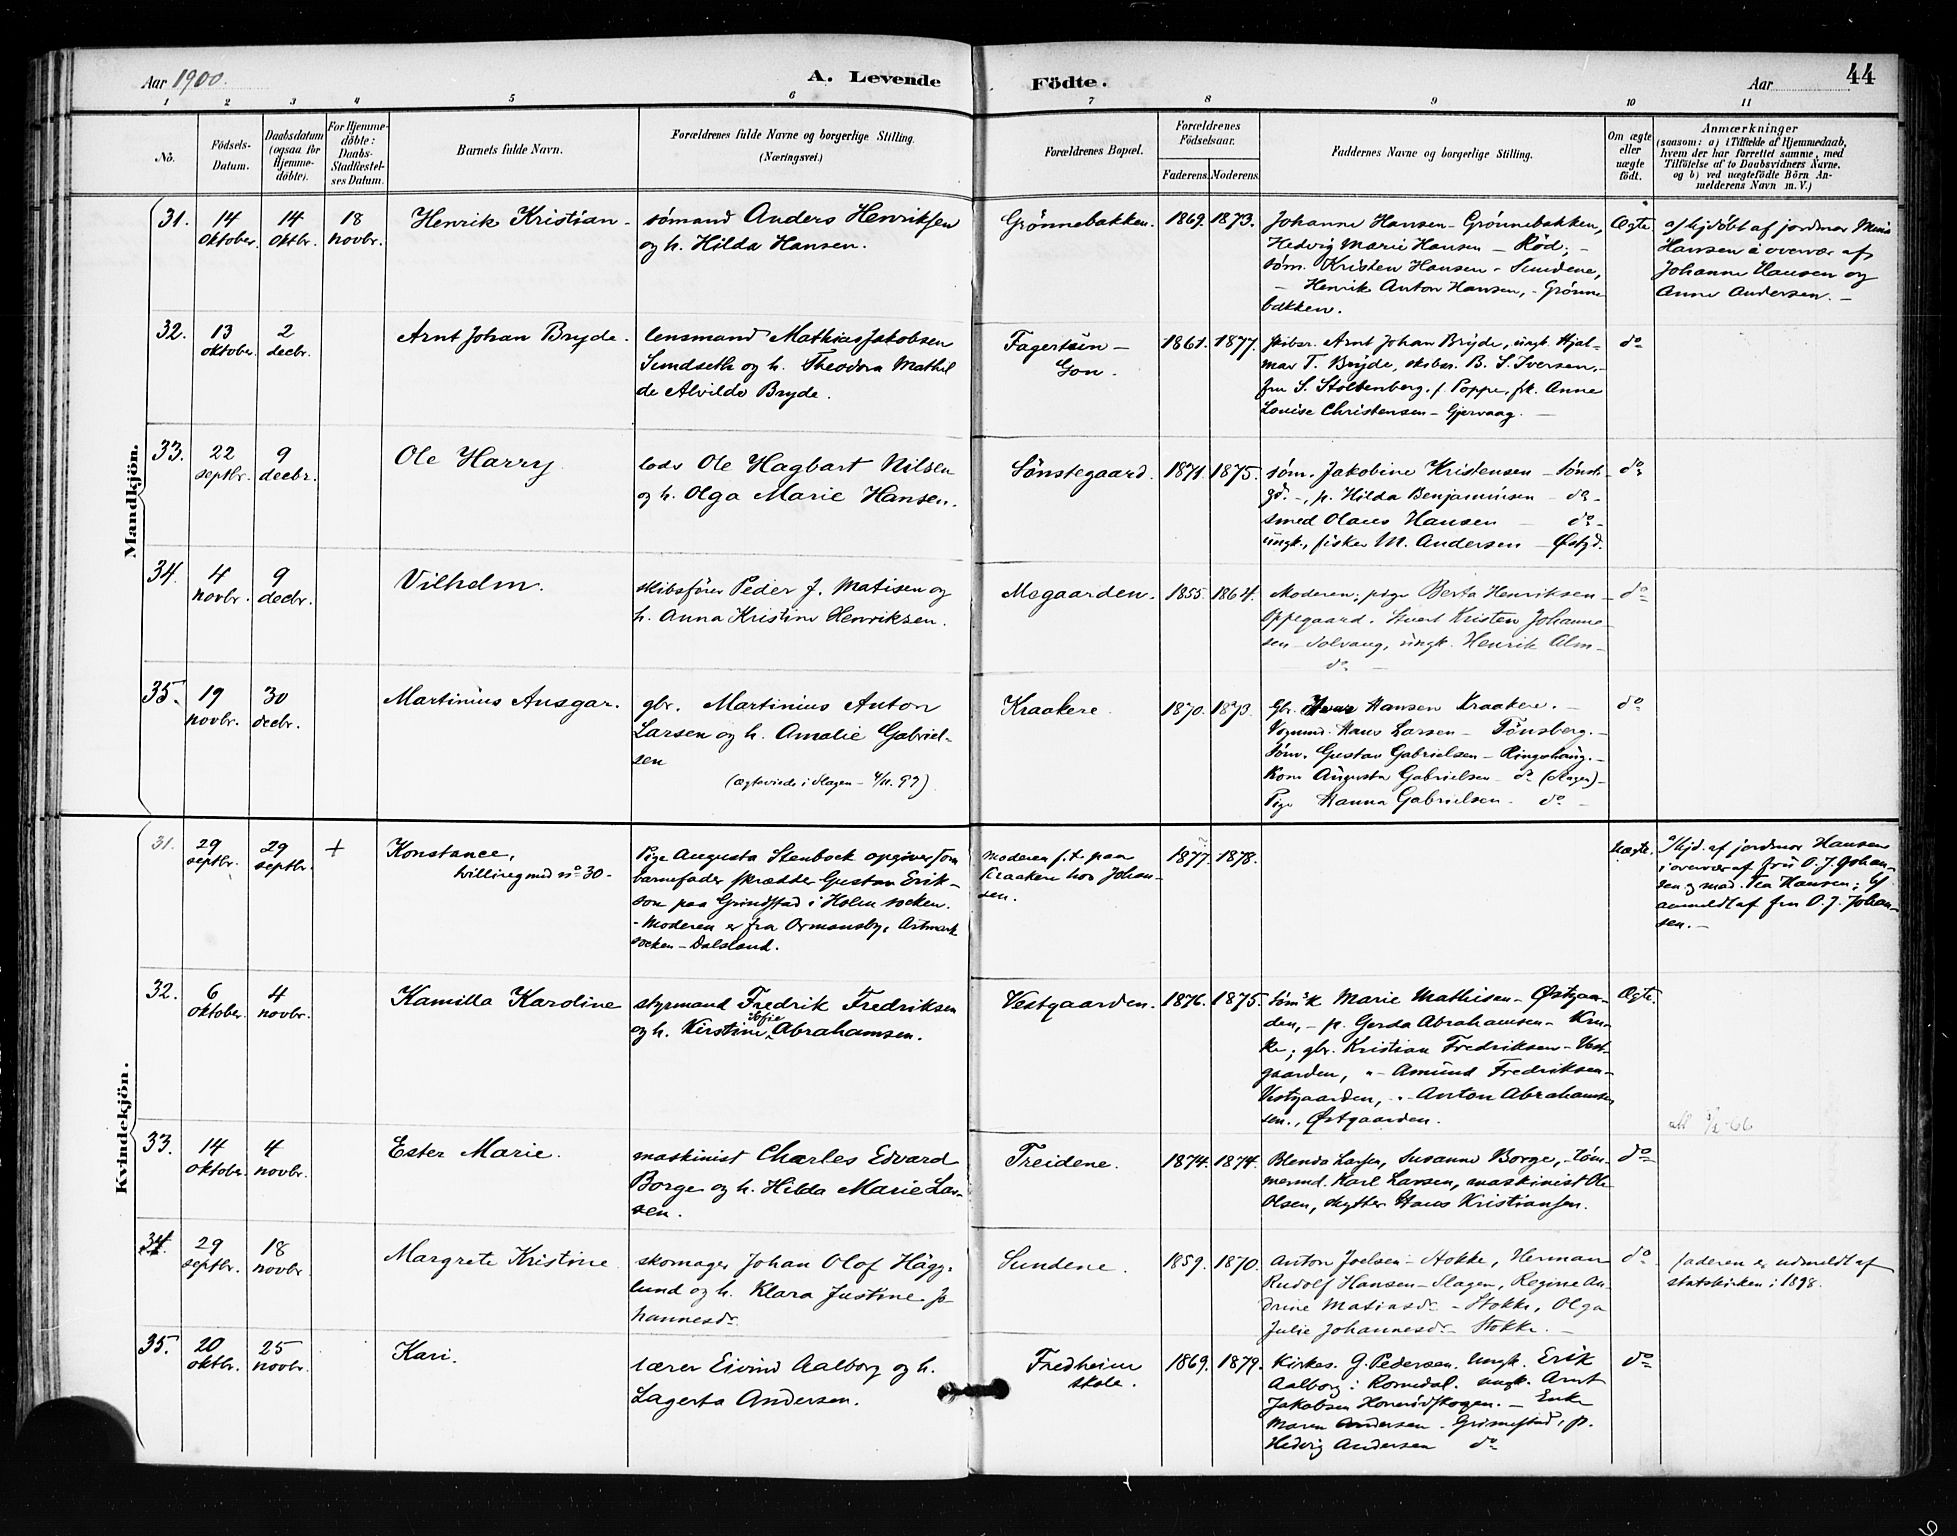 Aar 1900.
A. Levende Födte.
Aar
44
1 2 3 4 5 6 7 8 9 10 11
No.
Födsels-Datum.
Daabsdatum (ogsaa for Hjemme-döbte).
For Hjemme-döbte: Daabs-Stadfæstel-ses Datum.
Barnets fulde Navn.
Forældrenes fulde Navne og borgerlige Stilling.
(Næringsvei.)
Forældrenes Bopæl.
Forældrenes Födselsaar.
Faderens. Moderens.
Faddernes Navne og borgerlige Stilling.
Om ægte eller uægte födt.
Anmærkninger
(saasom: a) i Tilfælde af Hjemmedaab,
hvem der har forrettet samme, med
Tilföielse af to Daabsvidners Navne,
og b) ved uægtefödte Börn An-
melderens Navn m. V.)
Mandkjön.
31. 14 oktober. 14 oktbr. 18 novbr.
Henrik Kristian
sømand Anders Henriksen
og h. Hilda Hansen.
Grønnebakken. 1869. 1873.
Johanne Hansen - Grønnebakken,
Hedvig Marie Hansen - Rød; -
søm. Kristen Hansen - Sundene,
- Henrik Anton Hansen, - Grønne
bakken.
Ægte
a/ hjdöbt af jordmor
Hansen i overvær af
Johanne Hansen og
Anne Andersen. -
32. 13 oktober. 2 decbr.
Arnt Johan Bryde.
lensmand Mathias Jakobsen
Sundseth og h. Theodora Mathil
de Alvilde Bryde.
Fagertun -
Gon.
1861. 1877.
skibsr. Arnt Johan Bryde, ungk. Hjal-
mar T. Bryde, skibsr. B. S. Iversen, -
fru S. Stoltenberg, f. Poppe, frk. Anne
Louise Christensen - Gjervaag. -
do
33. 22 septbr. 9 decbr.
Ole Harry
lods Ole Hagbart Nilsen
og h. Olga Marie Hansen.
Sønstegaard. 1871. 1875.
søm. Jakobine Kristensen - Sønst-
gd. -, p. Hilda Benjaminsen - do -
smed Olaus Hansen - do -
ungk., fisker M. Andersen - Østgd.
do
34. 4 novbr. 9 decbr.
Vilhelm.
skibsfører Peder J. Matisen og
h. Anna Kristine Henriksen.
Megaarden. 1855. 1864.
Moderen, pige Berta Henriksen -
Oppegaard. Stuert Kristen Johanne-
sen - Solvang, ungk. Henrik Alm -
do -
do
35. 19 novbr. 30 decbr.
Martinius Ansgar.
gbr. Martinius Anton
Larsen og h. Amalie Gabriel-
sen
(ægteviede i Slagen - 4/11. 99)
Kraakere. 1870. 1873.
Gbr. Hansen Kraakere. -
Vognmd. Hans Larsen - Tønsberg. -
Søm. Gustav Gabrielsen - Ringshaug. -
Kone Augusta Gabrielsen - do (Slagen) -
Pige Hanna Gabrielsen - do -
do
Kvindekjön.
31. 29 septbr. 29 septbr. +
Konstance,
tvilling med no 30 -
Pige Augusta Stenbock opgiver som
barnefader skrædder Gustav Erik-
son paa Grindstad i Holm socken.
- Moderen er fra Ormansby, Artmark
socken - Dalsland.
Moderen f. t. paa
Kraakere hos Johan-
sen.
1877. 1878.
Uægte.
a/ hjd. af jordmor Hansen
i overvær af fru O. J. Johan-
sen og mad. Tea Hansen; b/
anmeldt af fru O. J. Johan-
sen. -
32. 6 oktober. 4 novbr.
Kamilla Karoline
styrmand Fredrik Fredriksen
og h. Kirstine Sofie Abrahamsen.
Vestgaarden. 1876. 1875.
søm's k Marie Mathisen - Østgaar-
den, - p. Gerda Abrahamsen - Kru-
ke; gbr. Kristian Fredriksen - Vest-
gaarden, " - Amund Fredriksen -
Vestgaarden, - " - Anton Abrahamsen
sen., Østgaarden.
Ægte.
33. 14 oktobr. 4 novbr.
Ester Marie.
maskinist Charles Edvard
Borge og h. Hilda Marie Lar-
sen.
Treidene. 1874. 1874.
Blenda Larsen, Susanne Borge, - tøm-
mermd. Karl Larsen, maskinist Ole
Olsen, skytter Hans Kristiansen.
do
34. 29 septbr. 18 novbr.
Margrete Kristine
skomager Johan Olof Hägg-
lund og h. Klara Justine Jo
hannesdr.
Sundene. 1859. 1870.
Anton Joelsen - Stokke, Herman
Rudolf Hansen - Slagen, Regine An-
drine Matiasdr - Stokke, Olga
Julie Johannesdr - Stokke. -
do
faderen er udmeldt af
statskirken i 1898.
35. 20 oktbr. 25 novbr.
Kari.
lærer Eivind Aalborg og h.
Lagerta Andersen.
Fredheim
skole.
1869. 1879.
Kirkes. G. Pedersen. Ungk. Erik
Aalborg i Romedal. ungk. Arnt
Jakobsen - Enke
Maren Andersen - Grimestad, p.
Hedvig Andersen do
do